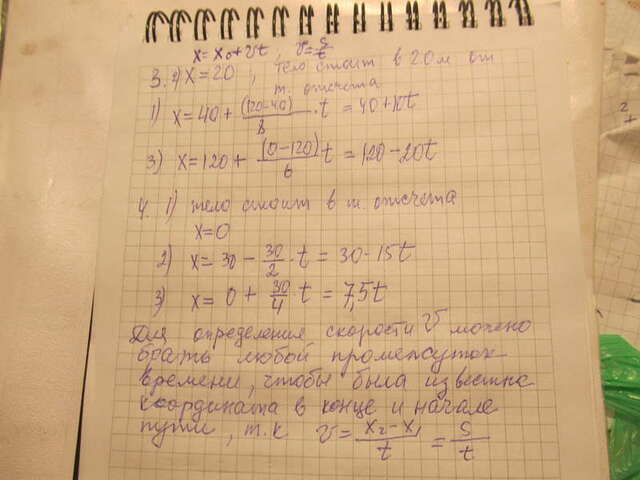 x = x₀ + vt, v = s/t
3. 2) x = 20, тело стоит в 20 м от
т. отсчета
1) x = 40 + (120-40)/8 · t = 40 + 10t
3) x = 120 + (0-120)/6 t = 120 - 20t
4. 1) тело стоит в т. отсчета
x = 0
2) x = 30 - 30/2 · t = 30 - 15t
3) x = 0 + 30/4 t = 7,5t
Для определения скорости v можно
брать любой промежуток
времени, чтобы была известна
координата в конце и начале
пути, т.к v = x₂ - x₁/t = s/t